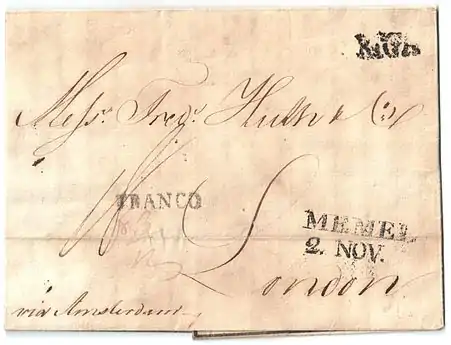 RIGA
Messrs. Fredk. Huth & Co.
FRANCO
MEMEL
2. NOV.
London
via Amsterdam